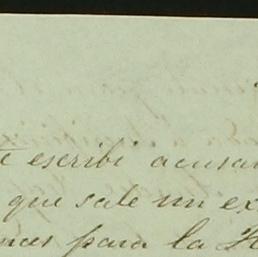 te escribi acusan
que sale un ex
nces para la H